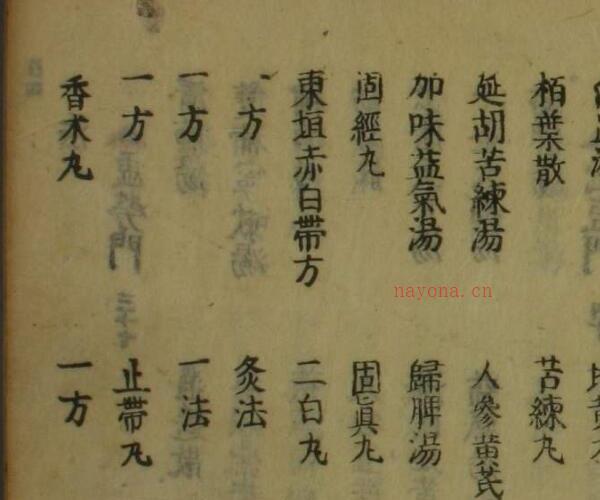 栢葉散
苦練丸
延胡苦練湯
人參黄芪
加味益氣湯
歸脾湯
固經丸
固眞丸
東垣赤白帶方
二白丸
一方
灸法
一方
一法
一方
止帶丸
香术丸
一方
nayona.cn